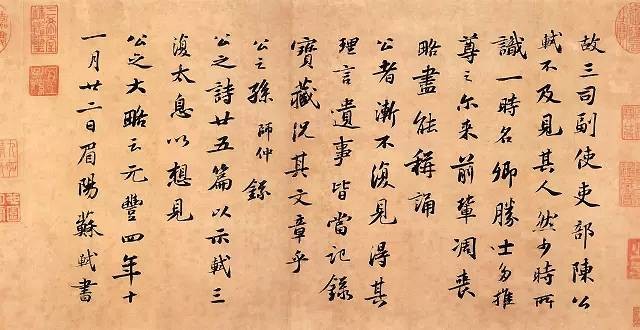 故三司副使吏部陳公
軾不及見其人然少時所
識一時名卿勝士多推
尊之尓来前輩凋喪
略盡能稱誦
公者漸不復見得其
理言遺事皆當記錄
寶藏况其文章乎
公之孫師仲錄
公之詩廿五篇以示軾三
復太息以想見
公之大略云元豐四年十
一月廿二日眉陽蘇軾書